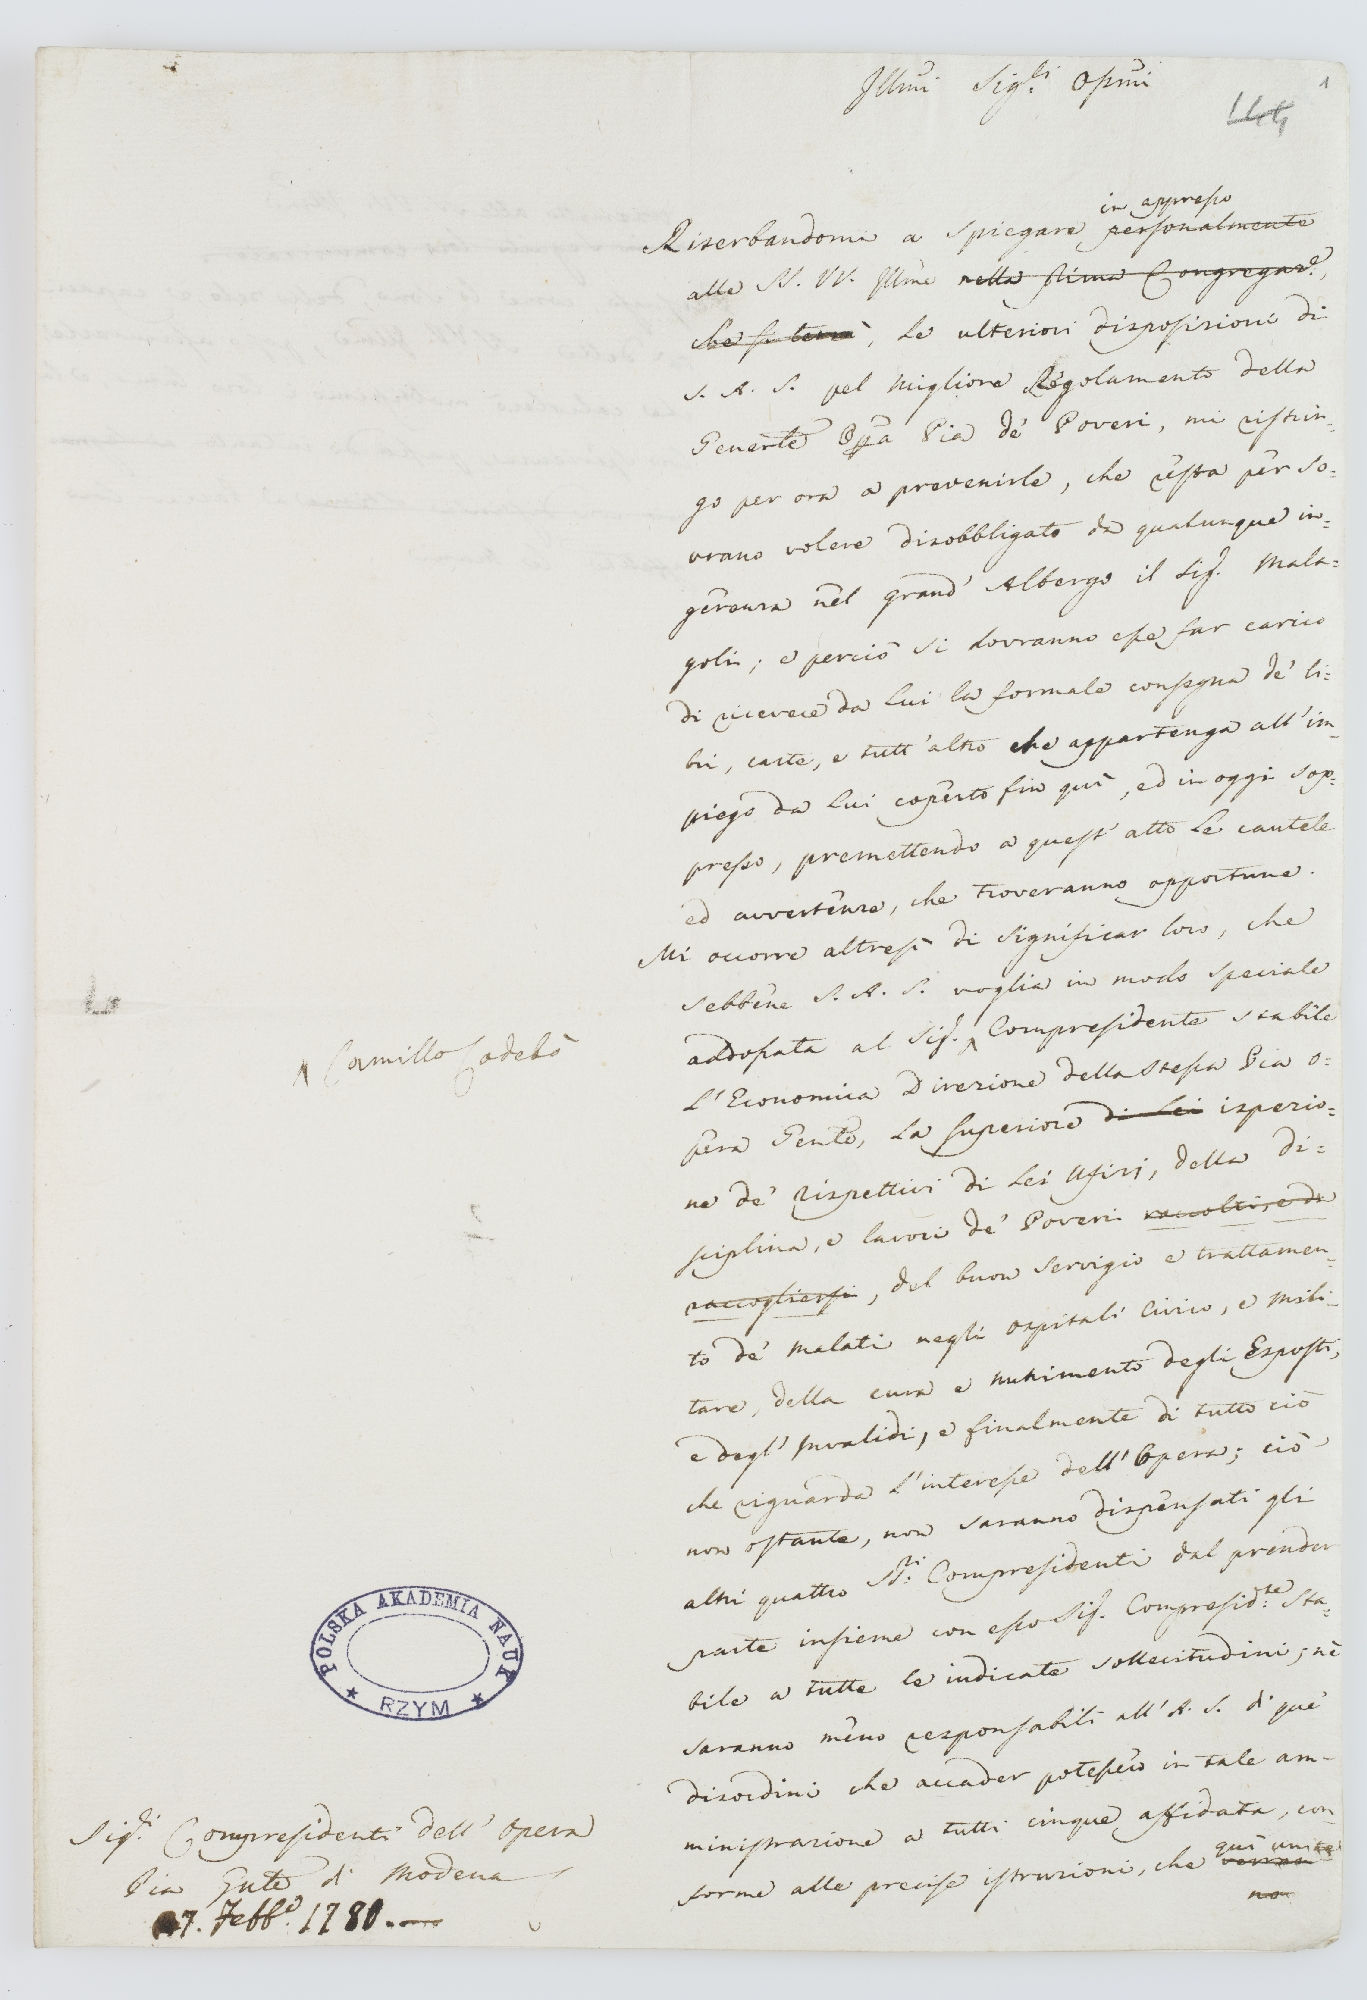 Illmi Sig.ri Ossmi
1
144
in appresso
Riserbandomi a spiegare personalmente
alle SS. VV. Illme nella prima Congregaz.e,
che si terrà, le ulteriori disposizioni di
S. A. S. pel migliore Regolamento della
Genérle Opa Pia de' Poveri, mi ristrin-
go per ora a prevenirle, che resta per So-
vrano volere disobbligato da qualunque in-
gerenza nel grand' Albergo il Sig. Mala-
goli; e perciò si dovranno esse far carico
di ricevere da Lui la formale consegna de' li-
bri, carte, e tutt' altro che appartenga all' im-
piego da Lui coperto fin quì, ed in oggi sop-
presso, premettendo a quest' atto le cautele
ed avvertenze, che troveranno opportune.
Mi occorre altresì di significar loro, che
sebbene S. A. S. voglia in modo speciale
addossata al Sig. ^ Compresidente stabile
^ Camillo Codebò
L' Economica Direzione della stessa Pia O-
pera Genle, la superiore di Lei ispezio-
ne de' rispettivi di Lei Ufizj, della di-
sciplina, e lavori de' Poveri raccolti, e da
raccogliersi, del buon servigio e trattamen-
to de' malati negli ospitali Civico, e Mili-
tare, della cura e nutrimento degli Esposti,
e degl' Invalidi, e finalmente di tutto ciò
che riguarda l' interesse dell' Opera; ciò
non ostante, non saranno dispensati gli
altri quattro SS.ri Compresidenti dal prender
parte insieme con esso Sig. Compresid.te Sta-
bile a tutte le indicate sollecitudini; nè
saranno meno responsabili all' A. S. di que'
disordini che accader potessero in tale am-
ministrazione a tutti cinque affidata, con-
forme alle precise istruzioni, che quì unite
verran
no
Sig.ri Compresidenti dell' Opera
Pia Gnle di Modena
27. Febb.o 1780.
POLSKA AKADEMIA NAUK
RZYM